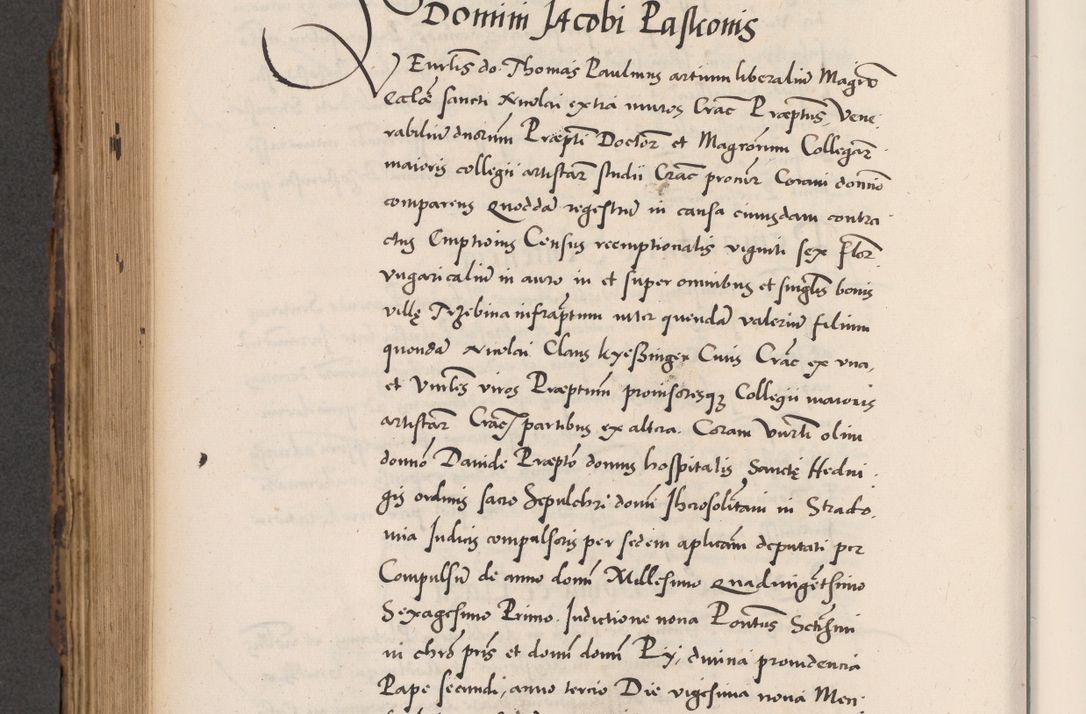 Domini Jacobi Paskonis
Venrlis do: Thomas Paulinus artium liberaliū Magrō
Ecclē sancti Nicolai extra muros Crac Præptus, Vene,
rabiliū dnorum Præpti Doctor et Magrorum Collegar
maioris collegii artistar studii Crac procur Coram domino
comparens Quoddā regestrū in causa cuiusdam contra
ctus Emptionis Census reemptionalis viginti sex flor
vngaricaliū in auro in et super omnibus et singlis bonis
villę Trzebina infraptum inter quendā valeriū filium
quondā Nicolai Claus kyeszinger Ciuis Crac ex vna,
et Vnrles viros Præptum prouisoresqꝫ Collegii maioris
artistar Crac, partibus ex altera. Coram Vnrli olim
domō Dauide Præpto domus hospitalis Sanctę Hedui,
gis ordinis sacro Sepulchri domi Iherosolitani in Strado,
mia Iudicis compulsoris per sedem aplicam deputati per
Compulsū de anno domī Millesimo Quadringētesimo
Sexagesimo Primo. Indictione nona Pontus Sctissimi
in chrō pris et domī domī Py, diuina prouidencia
Pape secundi, anno tercio Die vigesima nona Men